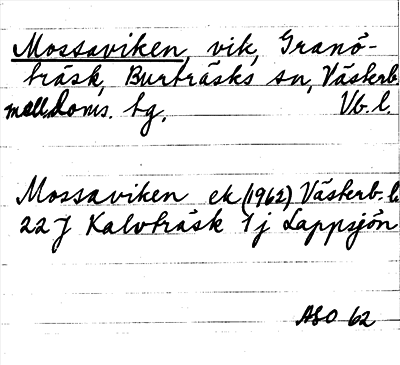 Mossaviken, vik, Granö-
träsk, Burträsks sn, Västerb.
mell. doms. tg. Vb. l.
Mossaviken ek (1962) Västerb. l.
22 J Kalvträsk 1 j Lappsjön
ASO 62